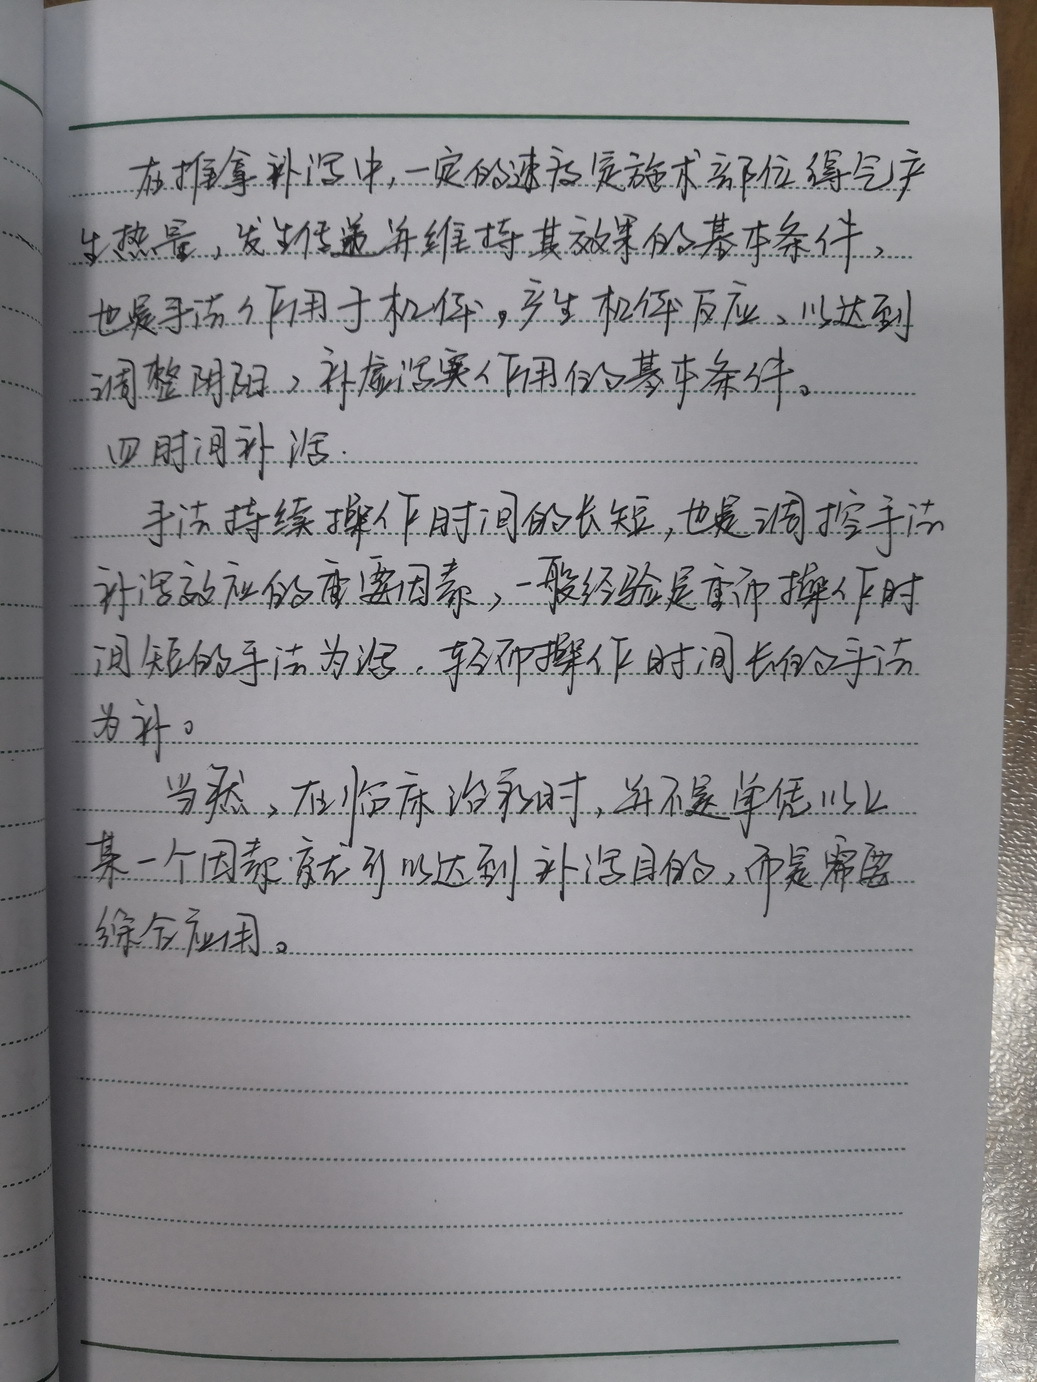 在推拿补泻中,一定的速度实施术部位得气产
生热量,发生传递并维持其效果的基本条件、
也是手法作用于机体,产生机体反应、以达到
调整阴阳,补虚泻实作用的基本条件。
四时间补泻.
手法持续操作时间的长短,也是调控手法
补泻效应的重要因素,一般经验是重而操作时
间短的手法为泻.轻而操作时间长的手法
为补。
当然,在临床治疗时,并不是单凭以上
某一个因素就可以达到补泻目的,而是需要
综合应用。